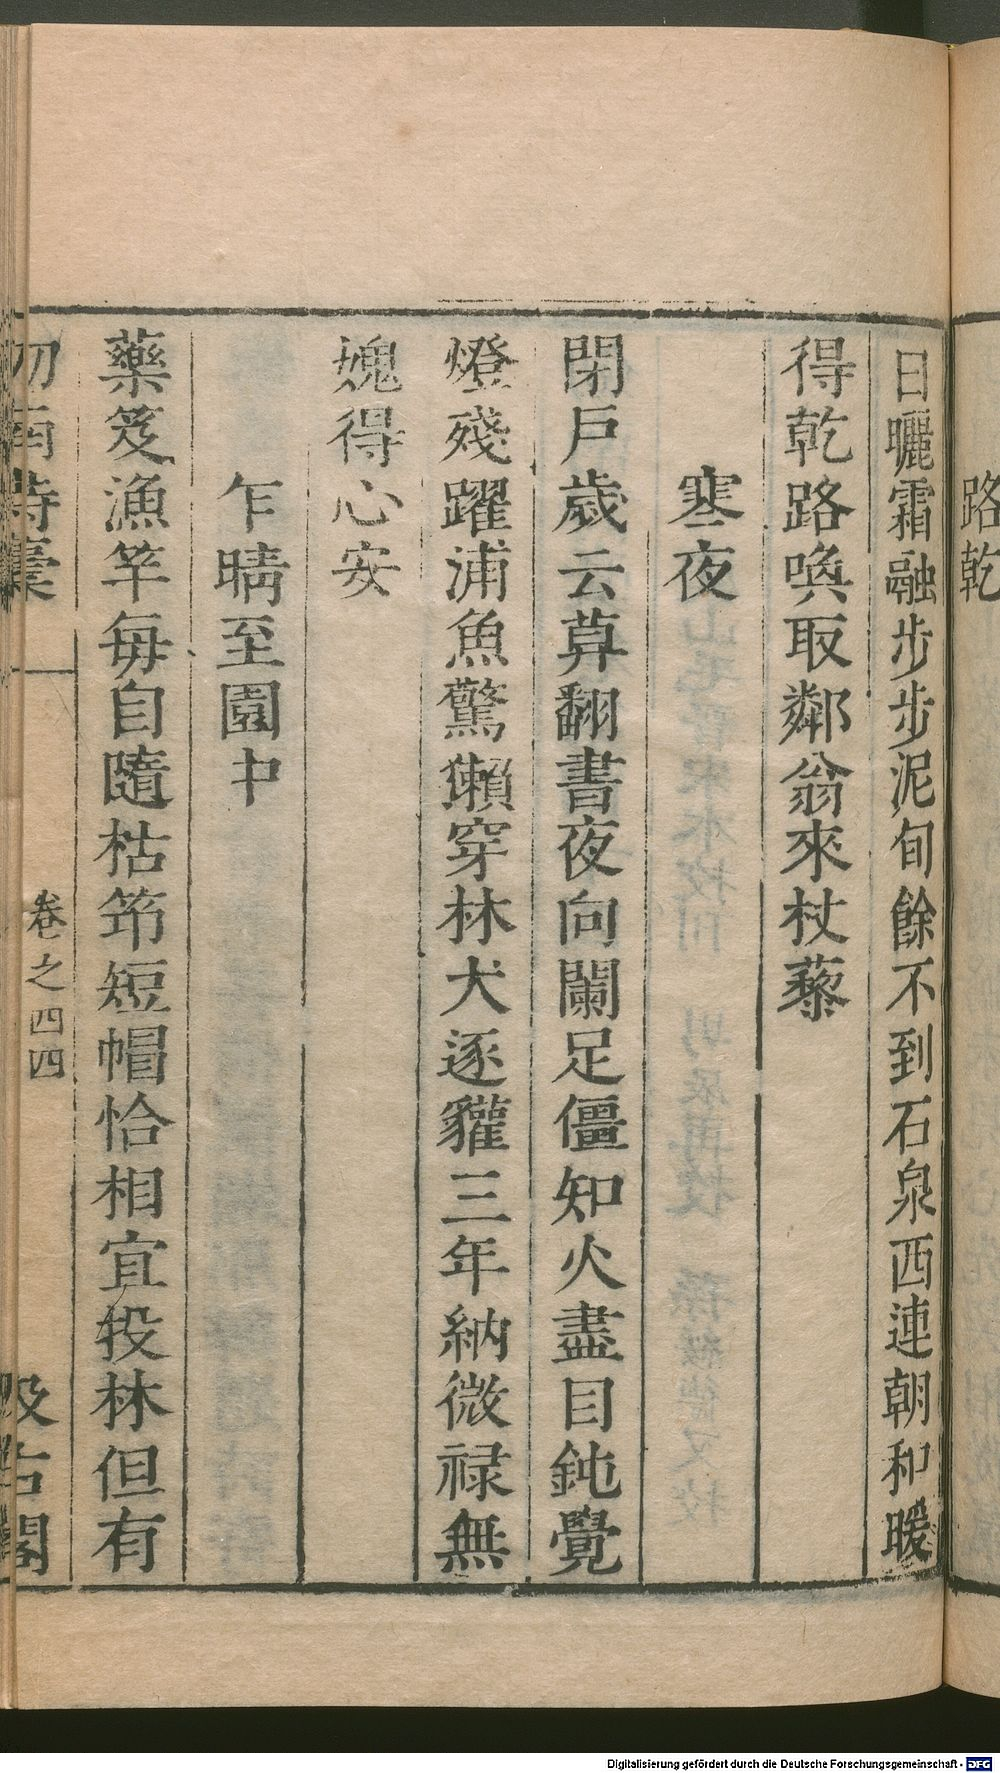 路乾
日曬霜融步步泥旬餘不到石泉西連朝和暖
得乾路喚取鄰翁來杖藜
寒夜
閉戶歲云莫翻書夜向闌足僵知火盡目鈍覺
燈殘躍浦魚驚獺穿林犬逐貛三年納微祿無
媿得心安
乍晴至園中
藥笈漁竿每自隨枯笻短帽恰相宜投林但有
劒南詩稾
卷之四四
汲古閣
Digitalisierung gefördert durch die Deutsche Forschungsgemeinschaft - DFG